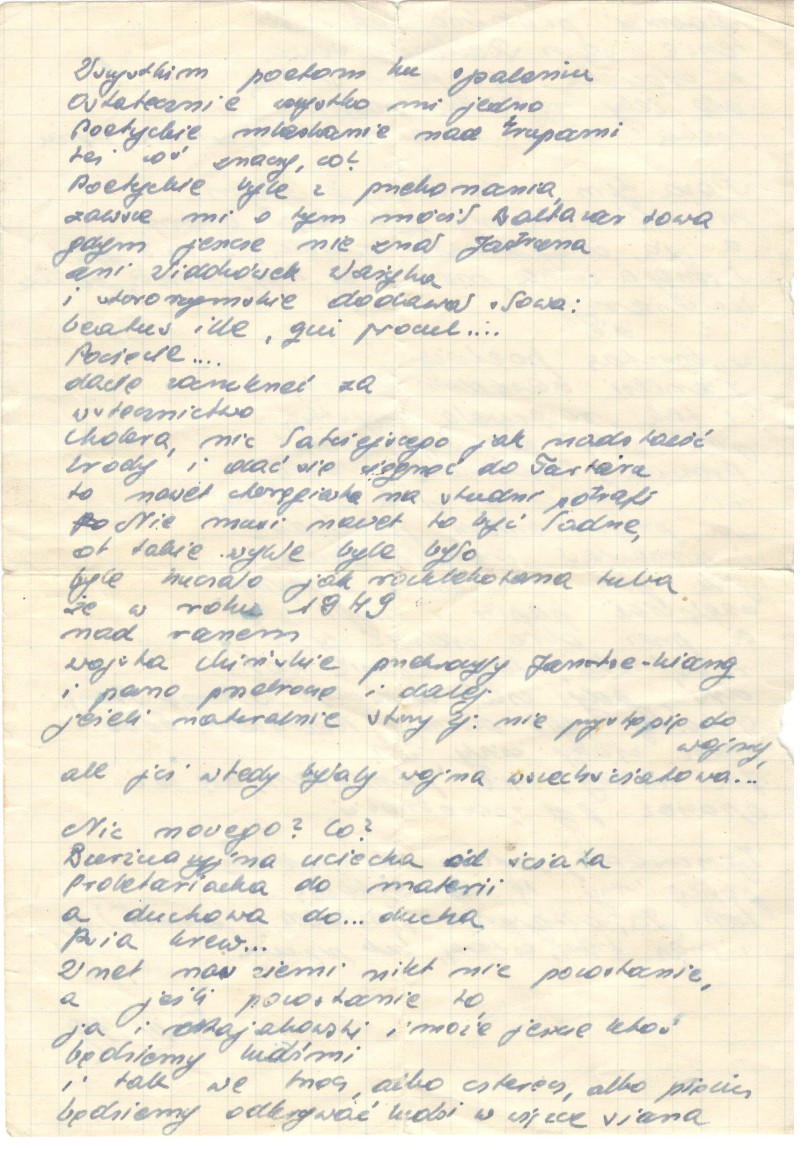 Wszystkim poetom ku spaleniu
Ostatecznie wszystko mi jedno
Poetyckie mlaskanie nad trupami
też coś znaczy, co?
Poetyckie byle z przekonania,
zawsze mi o tym mówił Baltazar sowa
gdym jeszcze nie znał Jastruna
ani Ważyka
i starorzymskie dodawał słowa:
beatus ille, qui procul....
Poczęcie....
dacie zamknąć za
wstecznictwo
cholera, nic łatwiejszego jak nadstawić
brody i dać się sięgnąć do Tartaru
to nawet na studni potrafi
Nie musi nawet to być ładne,
ot takie zwykłe byle było
byle huczało jak rozklekotana tuba
że w roku 1949
nad ranem
wojska chińskie przekroczyły Jang-tse-kiang
i pewno przekroczą i dalej
jeśli naturalnie Stany Zj. nie przystąpią do
wojny,
ale już wtedy byłaby wojna wszechświatowa...
Nic nowego? Co?
Burżuazyjna uciecha od świata
Proletariacka do materii
a duchowa do... ducha
Psia krew...
Wnet na ziemi nikt nie pozostanie,
a jeśli pozostanie to
ja i Majakowski i może jeszcze ktoś
będziemy ludźmi
i tak we troje, albo czterech, albo pięciu
będziemy odkrywać ludzi w siana